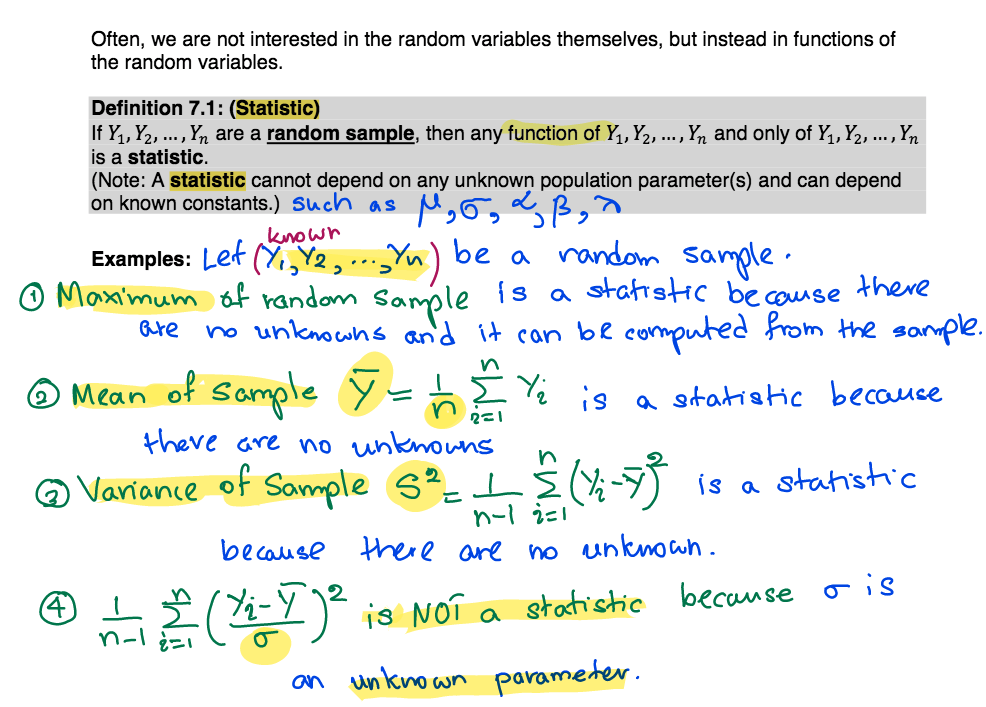 Often, we are not interested in the random variables themselves, but instead in functions of
the random variables.
Definition 7.1: (Statistic)
If Y₁, Y₂, … , Yₙ are a random sample, then any function of Y₁, Y₂, … , Yₙ and only of Y₁, Y₂, … , Yₙ
is a statistic.
(Note: A statistic cannot depend on any unknown population parameter(s) and can depend
on known constants.) such as μ, σ, α, β, λ
known
Examples: Let (Y₁, Y₂, ..., Yn) be a random sample.
① Maximum of random sample is a statistic because there
are no unknowns and it can be computed from the sample.
② Mean of Sample Ȳ = 1/n Σ_{i=1}^{n} Yᵢ is a statistic because
there are no unknowns
③ Variance of Sample S² = 1/(n-1) Σ_{i=1}^{n} (Yᵢ-Ȳ)² is a statistic
because there are no unknown.
④ 1/(n-1) Σ_{i=1}^{n} ((Yᵢ-Ȳ)/σ)² is NOT a statistic because σ is
an unknown parameter.